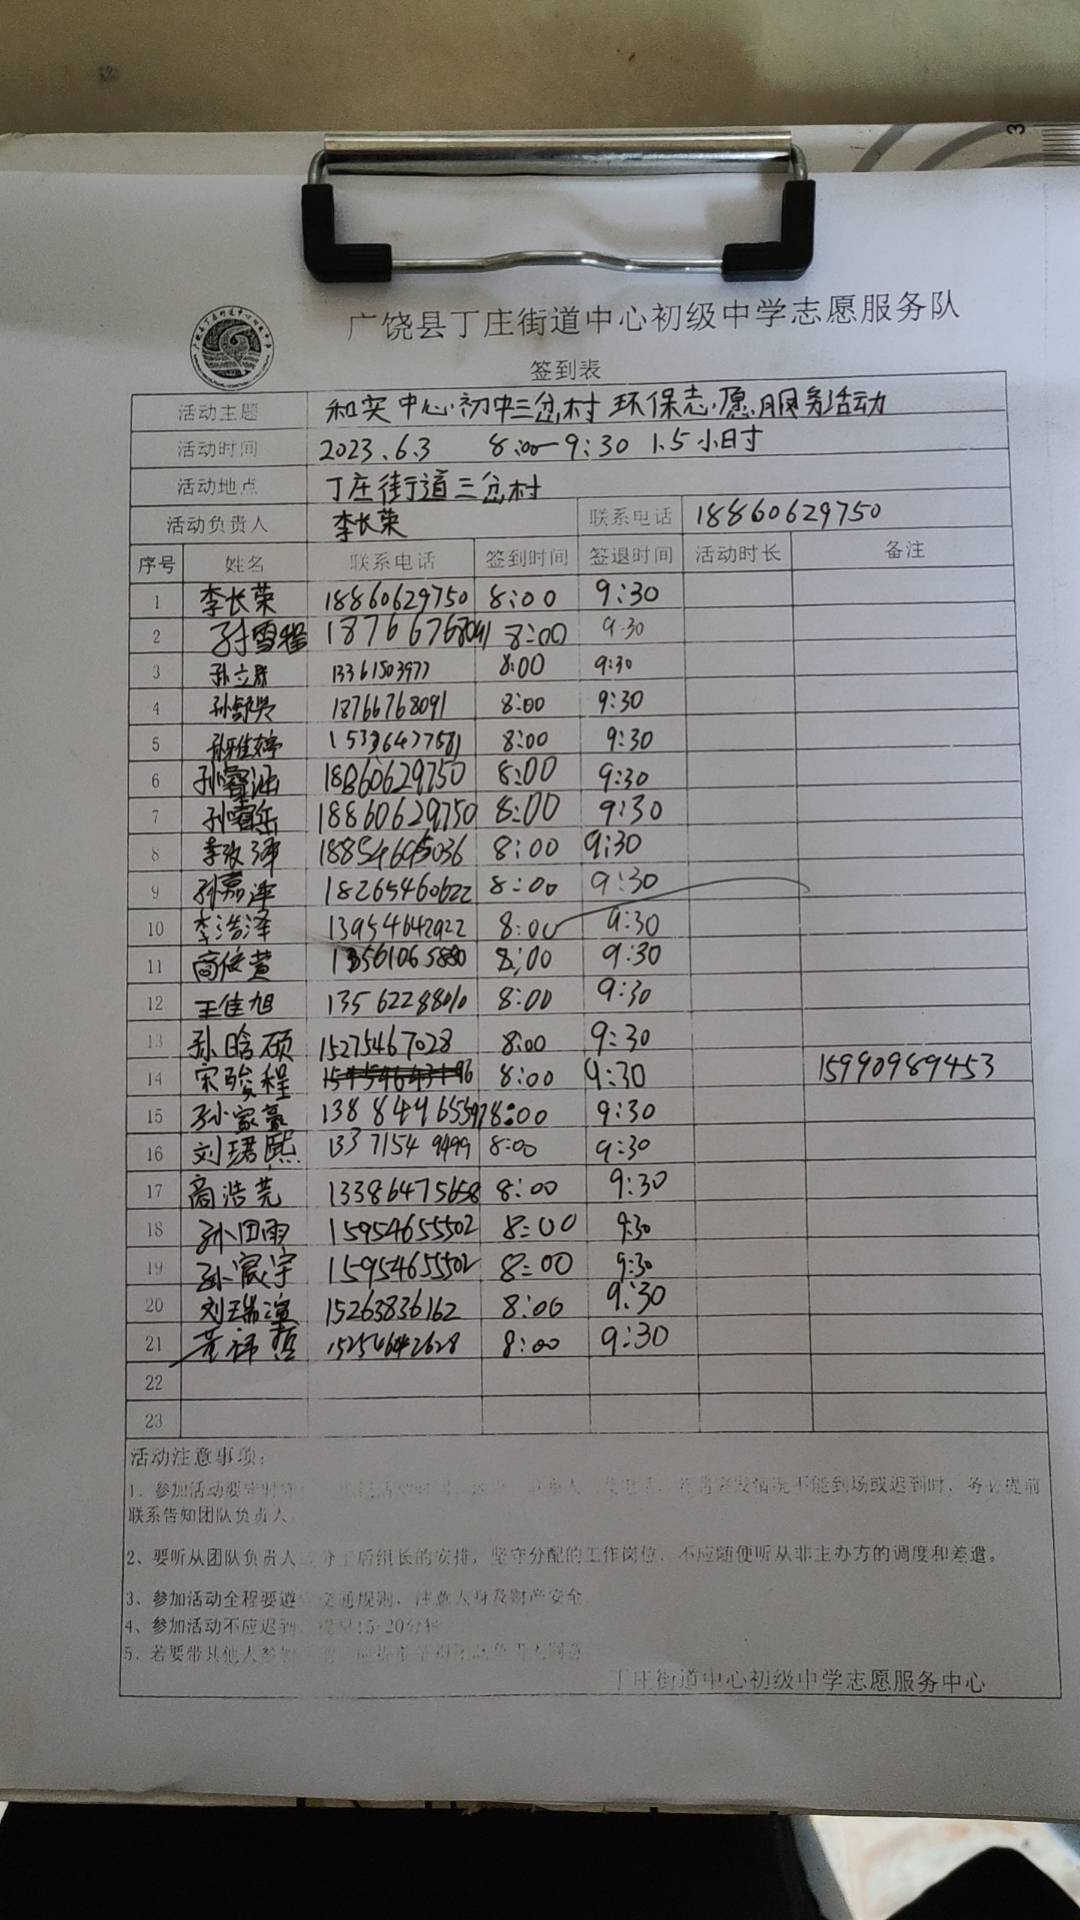 广饶县丁庄街道中心初级中学志愿服务队
签到表
活动主题 和实中心初中三岔村环保志愿服务活动
活动时间 2023.6.3 8:00-9:30 1.5小时
活动地点 丁庄街道三岔村
活动负责人 李长荣 联系电话 18860629750
序号 姓名 联系电话 签到时间 签退时间 活动时长 备注
1 李长荣 18860629750 8:00 9:30
2 孙雪程 8:00 9:30
3 13361503977 8:00 9:30
4 18766768091 8:00 9:30
5 孙雅婷 8:00 9:30
6 18860629750 8:00 9:30
7 孙睿乐 18860629750 8:00 9:30
8 8:00 9:30
9 孙嘉泽 18265460622 8:00 9:30
10 李浩泽 13954642922 8:00 9:30
11 8:00 9:30
12 王佳旭 13562288010 8:00 9:30
13 孙晗硕 15275467028 8:00 9:30
14 宋骏程 8:00 9:30 15990989453
15 孙家豪 8:00 9:30
16 刘珺熙 13371549499 8:00 9:30
17 高浩芫 13386475658 8:00 9:30
18 孙田雨 15954655502 8:00 9:30
19 孙宸宇 15954655502 8:00 9:30
20 15263836162 8:00 9:30
21 15254642628 8:00 9:30
22
23
活动注意事项:
1、参加活动要 情况不能到场或迟到时,务必提前
联系告知团队负责人
2、要听从团队负责人 后组长的安排,坚守分配的工作岗位,不应随便听从非主办方的调度和差遣。
3、参加活动全程要遵 交通规则,注意人身及财产安全
4、参加活动不应迟到 15-20分钟
5、若要带其他人参加
丁庄街道中心初级中学志愿服务中心